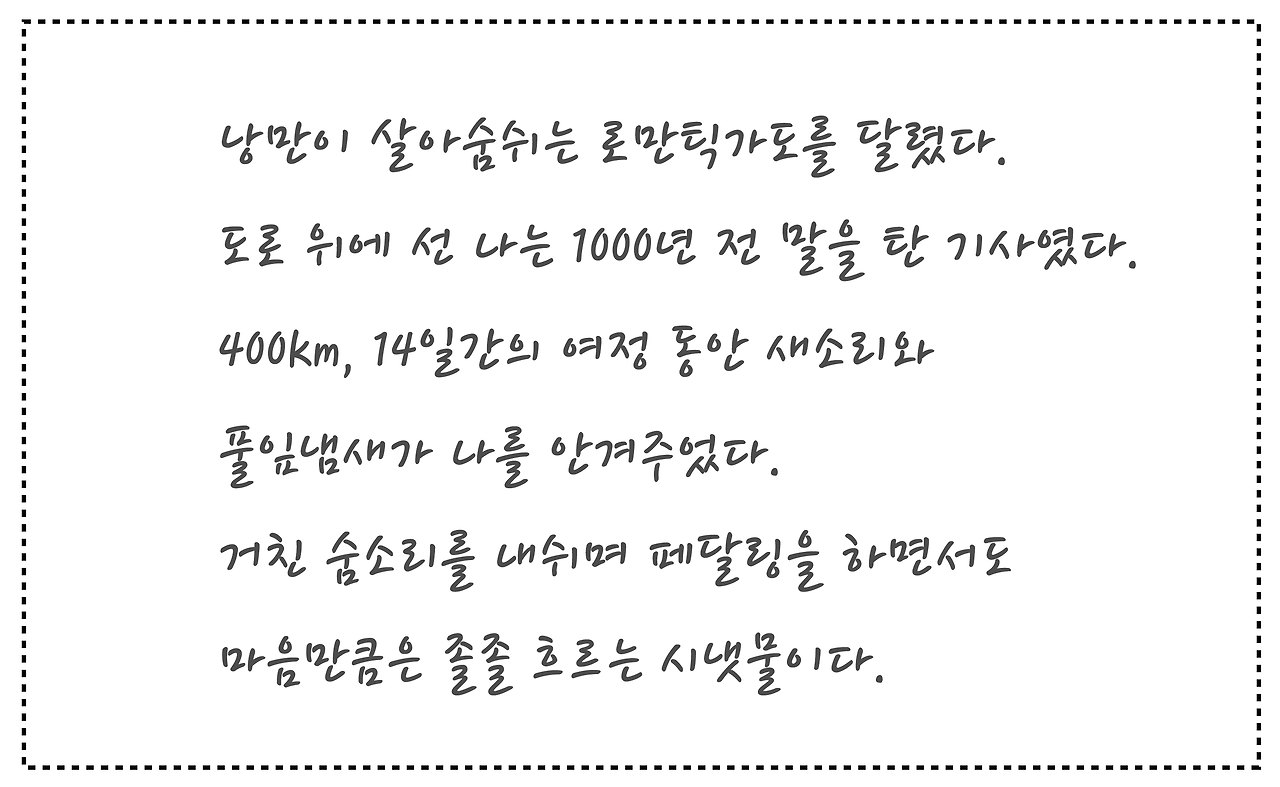 낭만이 살아숨쉬는 로만틱가도를 달렸다.
도로 위에 선 나는 1000년 전 말을 탄 기사였다.
400km, 14일간의 여정 동안 새소리와
풀잎냄새가 나를 안겨주었다.
거친 숨소리를 내쉬며 페달링을 하면서도
마음만큼은 졸졸 흐르는 시냇물이다.